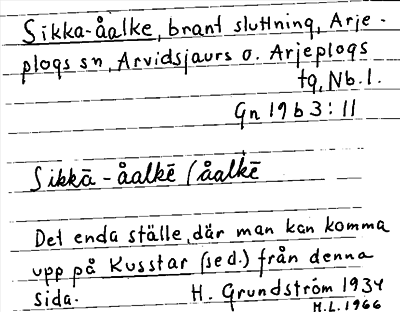 Sikka-åalke, brant sluttning, Arje-
plogs sn, Arvidsjaurs o. Arjeplogs
tg, Nb. l.
Gn 19 b 3 : 11
Sikkā - åalkē ( åalkē
Det enda ställe, där man kan komma
upp på Kusstar (se d.) från denna
sida. H. Grundström 1934
M.L. 1966